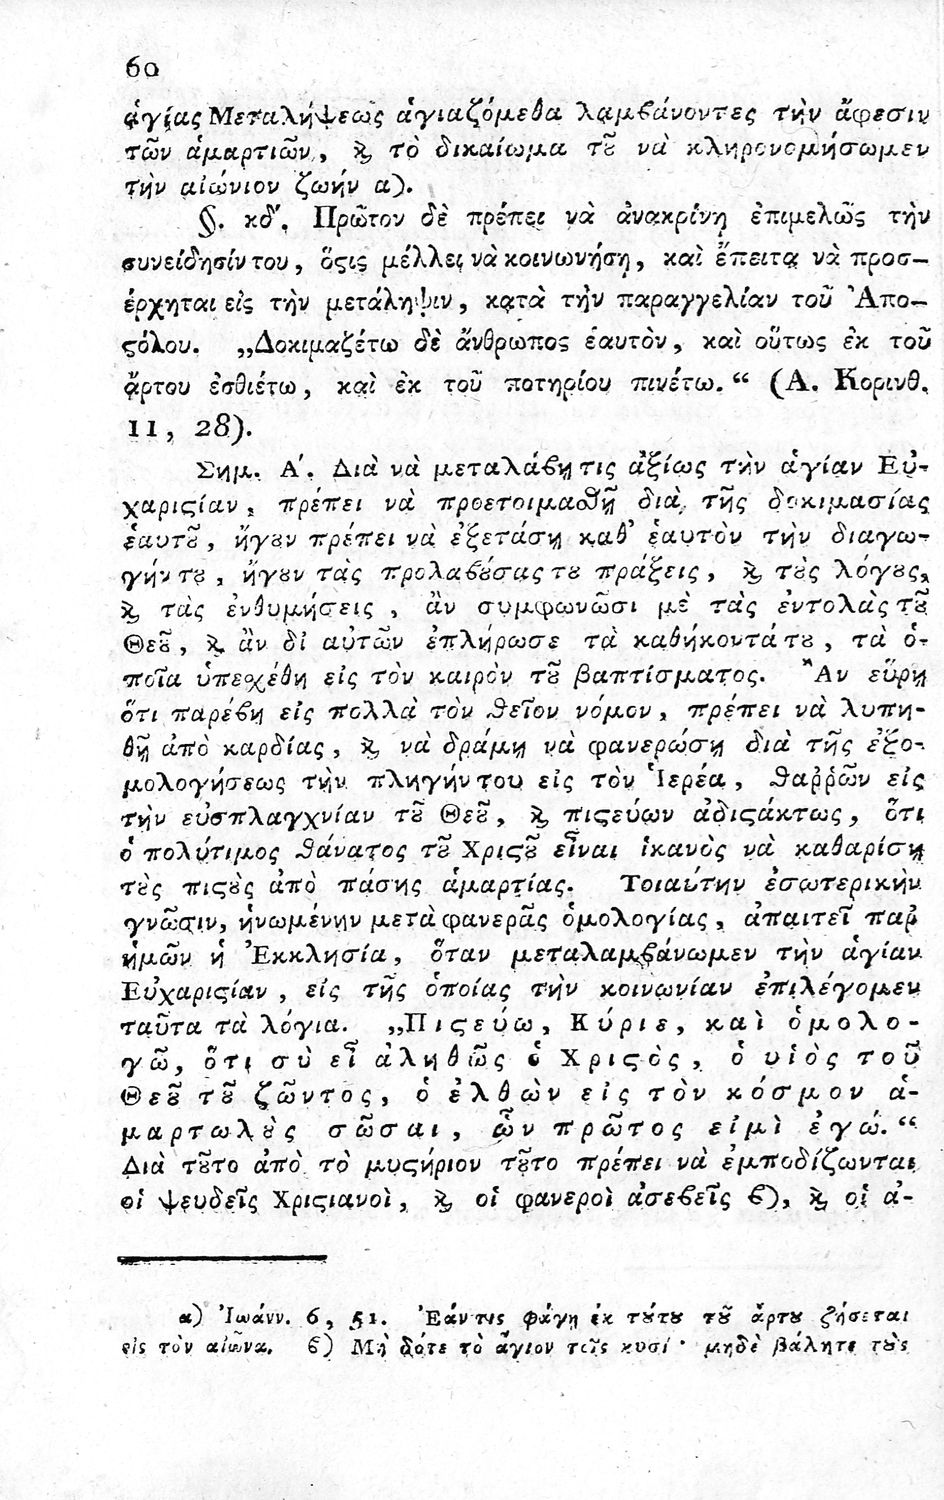 60
ἁγίας Μεταλήψεως ἁγιαζόμεθα λαμβάνοντες τὴν ἄφεσιν
τῶν ἁμαρτιῶν, ϗ τὸ δικαίωμα τȣ͂ νὰ κληρονομήσωμεν
τὴν αἰώνιον ζωήν α).
§. κδ΄. Πρῶτον δὲ πρέπει νὰ ἀνακρίνῃ ἐπιμελῶς τὴν
συνείδησίν του, ὅϛις μέλλει νὰ κοινωνήσῃ, καὶ ἔπειτα νὰ προσ-
έρχηται εἰς τὴν μετάληψιν, κατὰ τὴν παραγγελίαν τοῦ Ἀπο-
ϛόλου. „Δοκιμαζέτω δὲ ἄνθρωπος ἑαυτὸν, καὶ οὕτως ἐκ τοῦ
ἄρτου ἐσθιέτω, καὶ ἐκ τοῦ ποτηρίου πινέτω.“ (Α. Κορινθ.
11, 28).
Σημ. Α΄. Διὰ νὰ μεταλάβῃ τις ἀξίως τὴν ἁγίαν Εὐ-
χαριϛίαν, πρέπει νὰ προετοιμασθῇ διὰ τῆς δοκιμασίας
ἑαυτȣ͂, ἤγȣν πρέπει νὰ ἐξετάσῃ καθ᾽ ἑαυτὸν τὴν διαγω-
γήν τȣ, ἤγȣν τὰς προλαβȣ́σας τȣ πράξεις, ϗ τȣ̀ς λόγȣς,
ϗ τὰς ἐνθυμήσεις, ἂν συμφωνῶσι μὲ τὰς ἐντολὰς τȣ͂
Θεȣ͂, ϗ ἂν δι᾽ αὐτῶν ἐπλήρωσε τὰ καθήκοντά τȣ, τὰ ὁ-
ποῖα ὑπεσχέθη εἰς τὸν καιρὸν τȣ͂ βαπτίσματος. Ἂν εὕρῃ
ὅτι παρέβη εἰς πολλὰ τὸν θεῖον νόμον, πρέπει νὰ λυπη-
θῇ ἀπὸ καρδίας, ϗ νὰ δράμῃ νὰ φανερώσῃ διὰ τῆς ἐξο-
μολογήσεως τὴν πληγήν του εἰς τὸν Ἱερέα, θαῤῥῶν εἰς
τὴν εὐσπλαγχνίαν τȣ͂ Θεȣ͂, ϗ πιϛεύων ἀδιϛάκτως, ὅτι
ὁ πολύτιμος θάνατος τȣ͂ Χριϛȣ͂ εἶναι ἱκανὸς νὰ καθαρίσῃ
τȣ̀ς πιϛȣ̀ς ἀπὸ πάσης ἁμαρτίας. Τοιαύτην ἐσωτερικὴν
γνῶσιν, ἡνωμένην μετὰ φανερᾶς ὁμολογίας, ἀπαιτεῖ παρ᾽
ἡμῶν ἡ Ἐκκλησία, ὅταν μεταλαμβάνωμεν τὴν ἁγίαν
Εὐχαριϛίαν, εἰς τῆς ὁποίας τὴν κοινωνίαν ἐπιλέγομεν
ταῦτα τὰ λόγια. „Πιϛεύω, Κύριε, καὶ ὁμολο-
γῶ, ὅτι σὺ εἶ ἀληθῶς ὁ Χριϛὸς, ὁ υἱὸς τοῦ
Θεȣ͂ τȣ͂ ζῶντος, ὁ ἐλθὼν εἰς τὸν κόσμον ἁ-
μαρτωλȣ̀ς σῶσαι, ὧν πρῶτος εἰμὶ ἐγώ.“
Διὰ τȣ͂το ἀπὸ τὸ μυϛήριον τȣ͂το πρέπει νὰ ἐμποδίζωνται
οἱ ψευδεῖς Χριϛιανοὶ, ϗ οἱ φανεροὶ ἀσεβεῖς β), ϗ οἱ ἀ-
α) Ἰωάνν. 6, 51. Ἐάν τις φάγῃ ἐκ τȣ́τȣ τȣ͂ ἄρτȣ ζήσεται
εἰς τὸν αἰῶνα. β) Μὴ δότε τὸ ἅγιον τοῖς κυσί · μηδὲ βάλητε τȣ̀ς